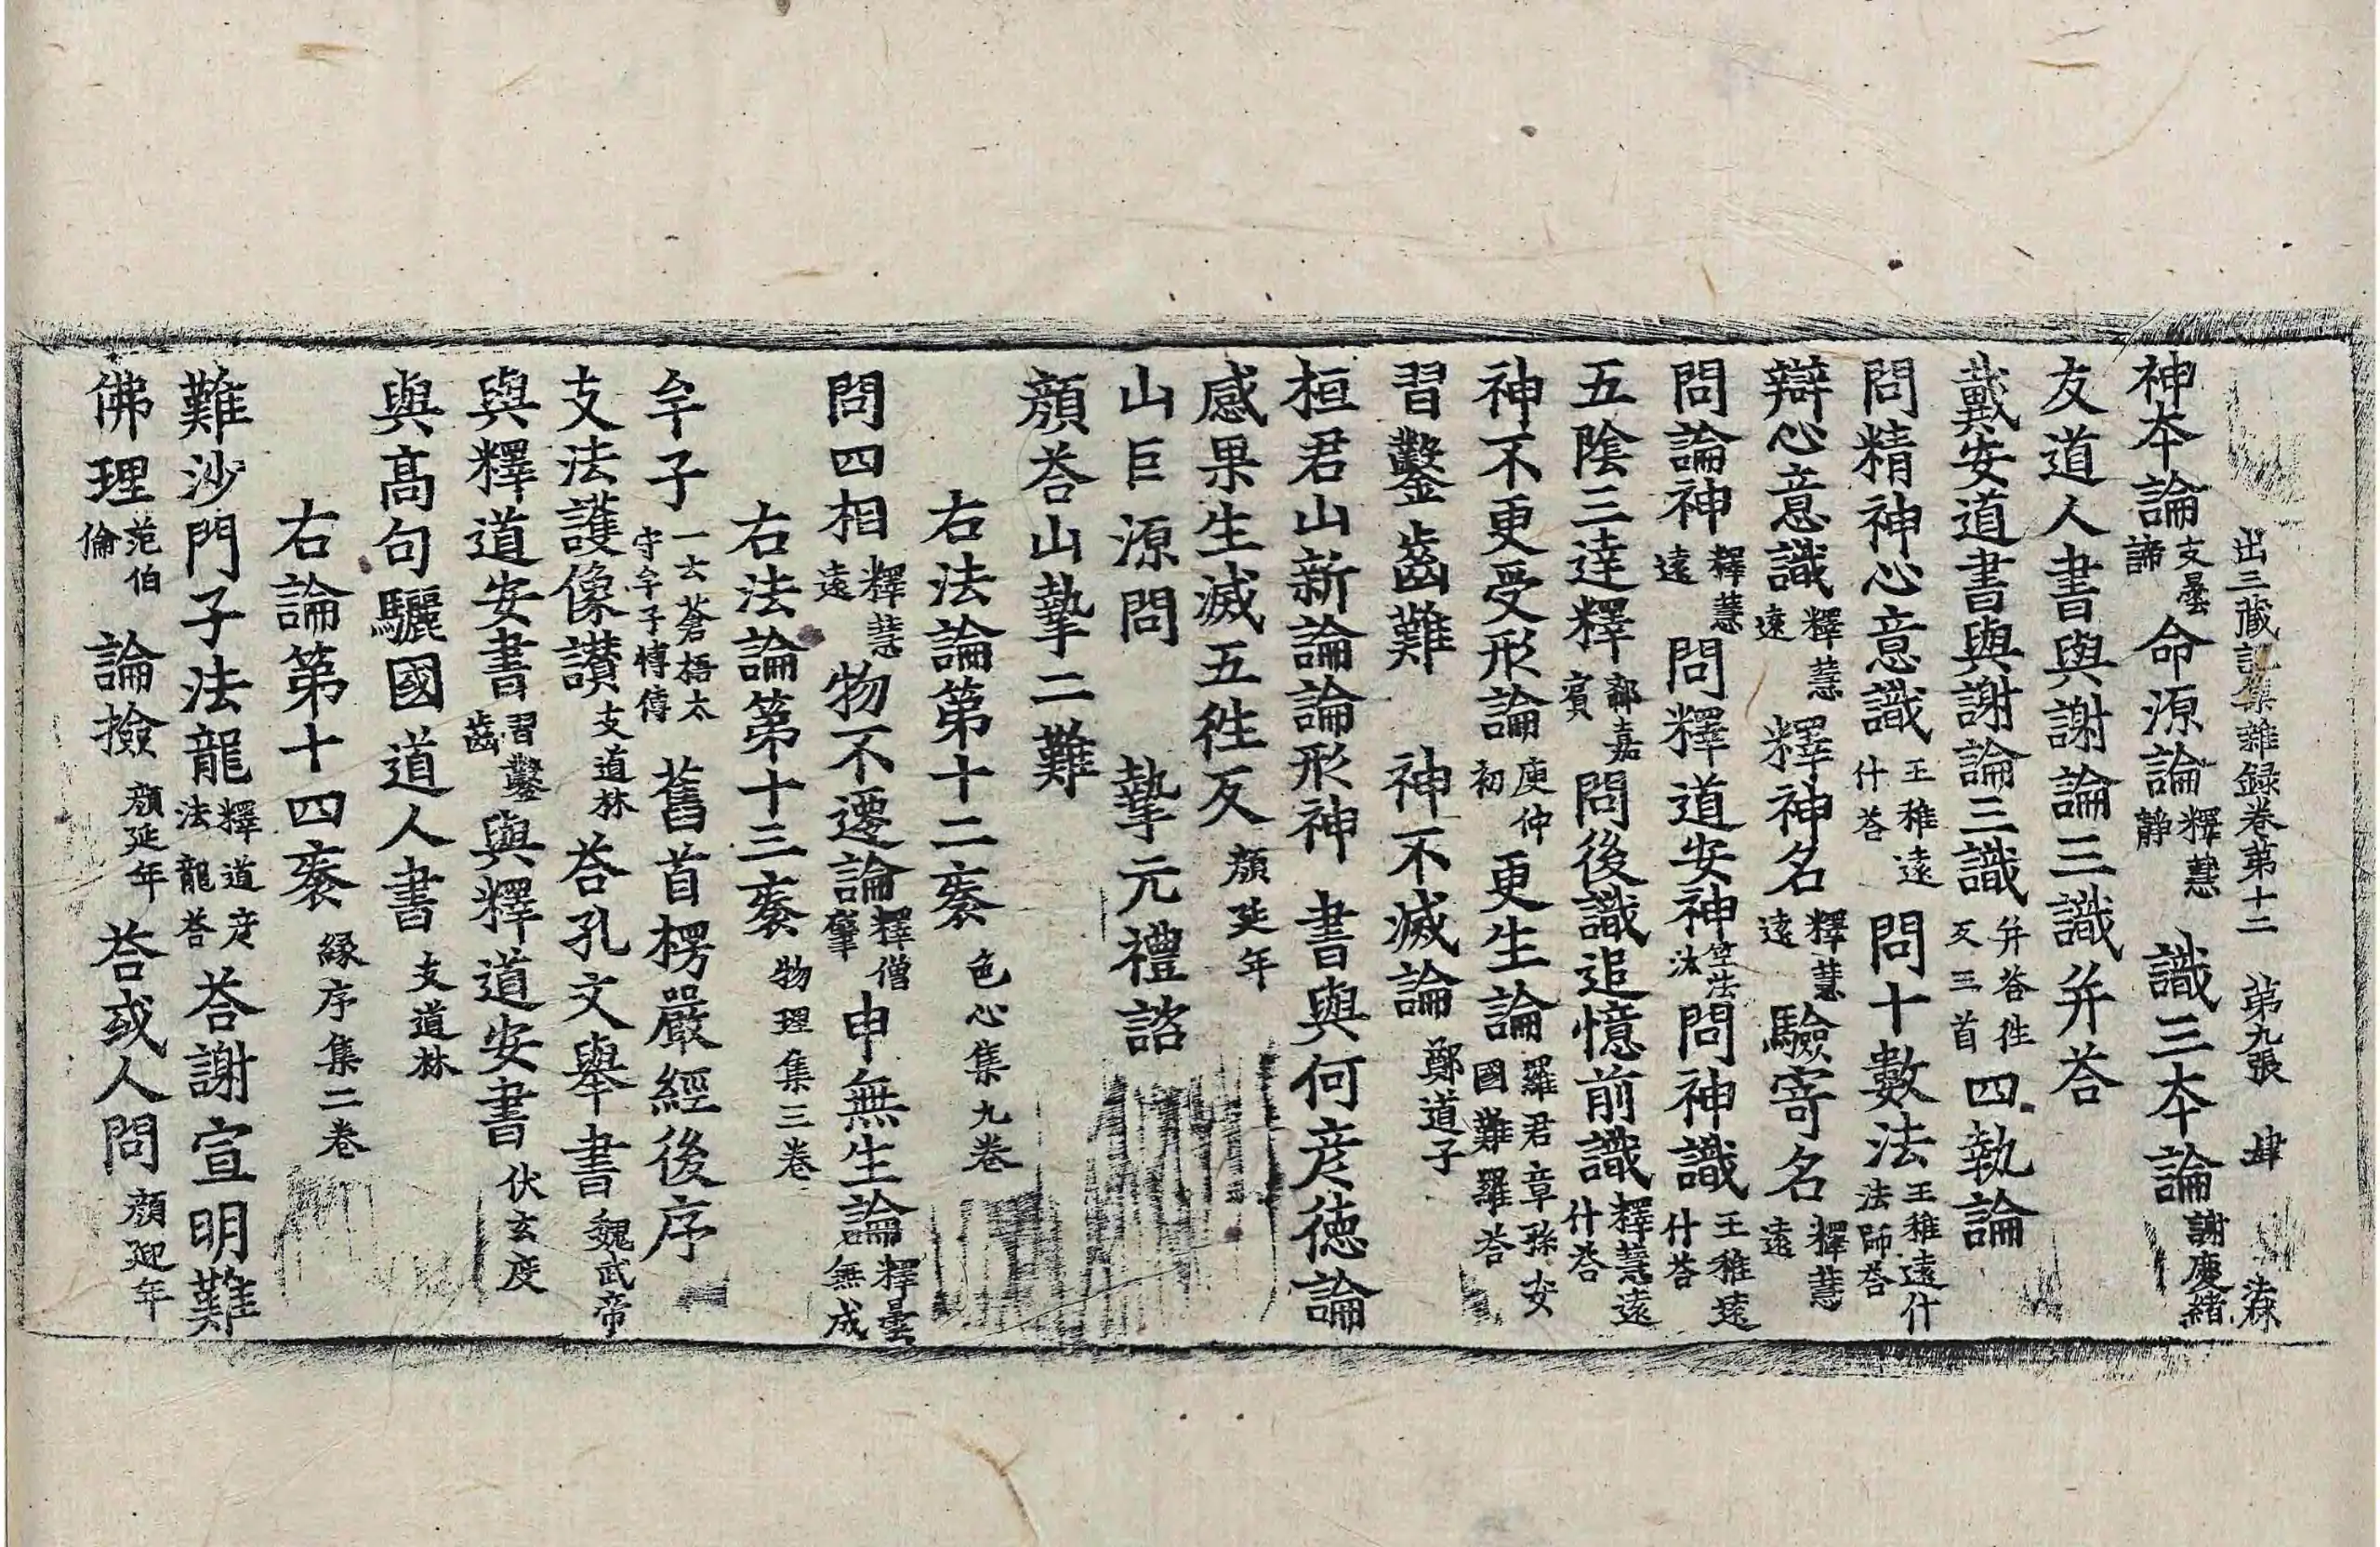 出三藏記集雜録卷第十二 第九張 肆 法珠
神本論支曇諦 命源論釋慧靜 識三本論謝慶緒
友道人書與謝論三識并荅
戴安道書與謝論三識并荅往反三首 四執論
問精神心意識王稚遠什荅 問十數法王稚遠什法師荅
辯心意識釋慧遠 釋神名釋慧遠 驗寄名釋慧遠
問論神釋慧遠 問釋道安神竺法汰 問神識王稚遠什荅
五陰三達釋郗嘉賓 問後識追憶前識釋慧遠什荅
神不更受形論庾仲初 更生論羅君章孫安國難羅荅
習鑿齒難 神不滅論鄭道子
桓君山新論論形神 書與何彦德論
感果生滅五往反顔延年
山巨源問 摯元禮諮
顔荅山摯二難
右法論第十二袠色心集九卷
問四相釋慧遠 物不遷論釋僧肇 申無生論釋曇無成
右法論第十三袠物理集三卷
牟子一云蒼梧太守牟子博傳 舊首楞嚴經後序
支法護像讃支道林 荅孔文舉書魏武帝
與釋道安書習鑿齒 與釋道安書伏玄度
與高句驪國道人書支道林
右論第十四袠縁序集二卷
難沙門子法龍釋道彦法龍荅 荅謝宣明難
佛理范伯倫 論撿顔延年 荅或人問顔延年